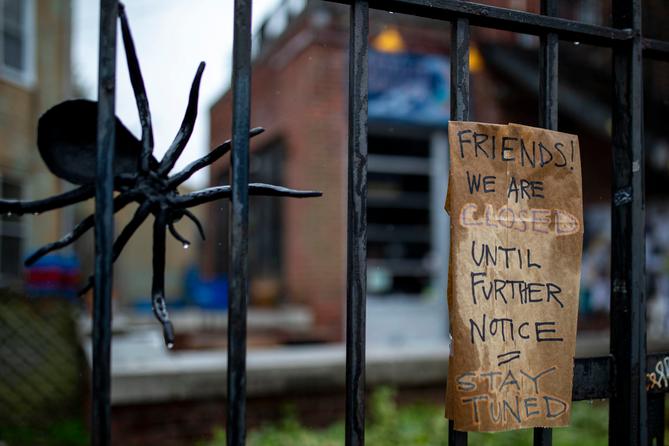 FRIENDS!
WE ARE
CLOSED
UNTIL
FURTHER
NOTICE
=
STAY
TUNED